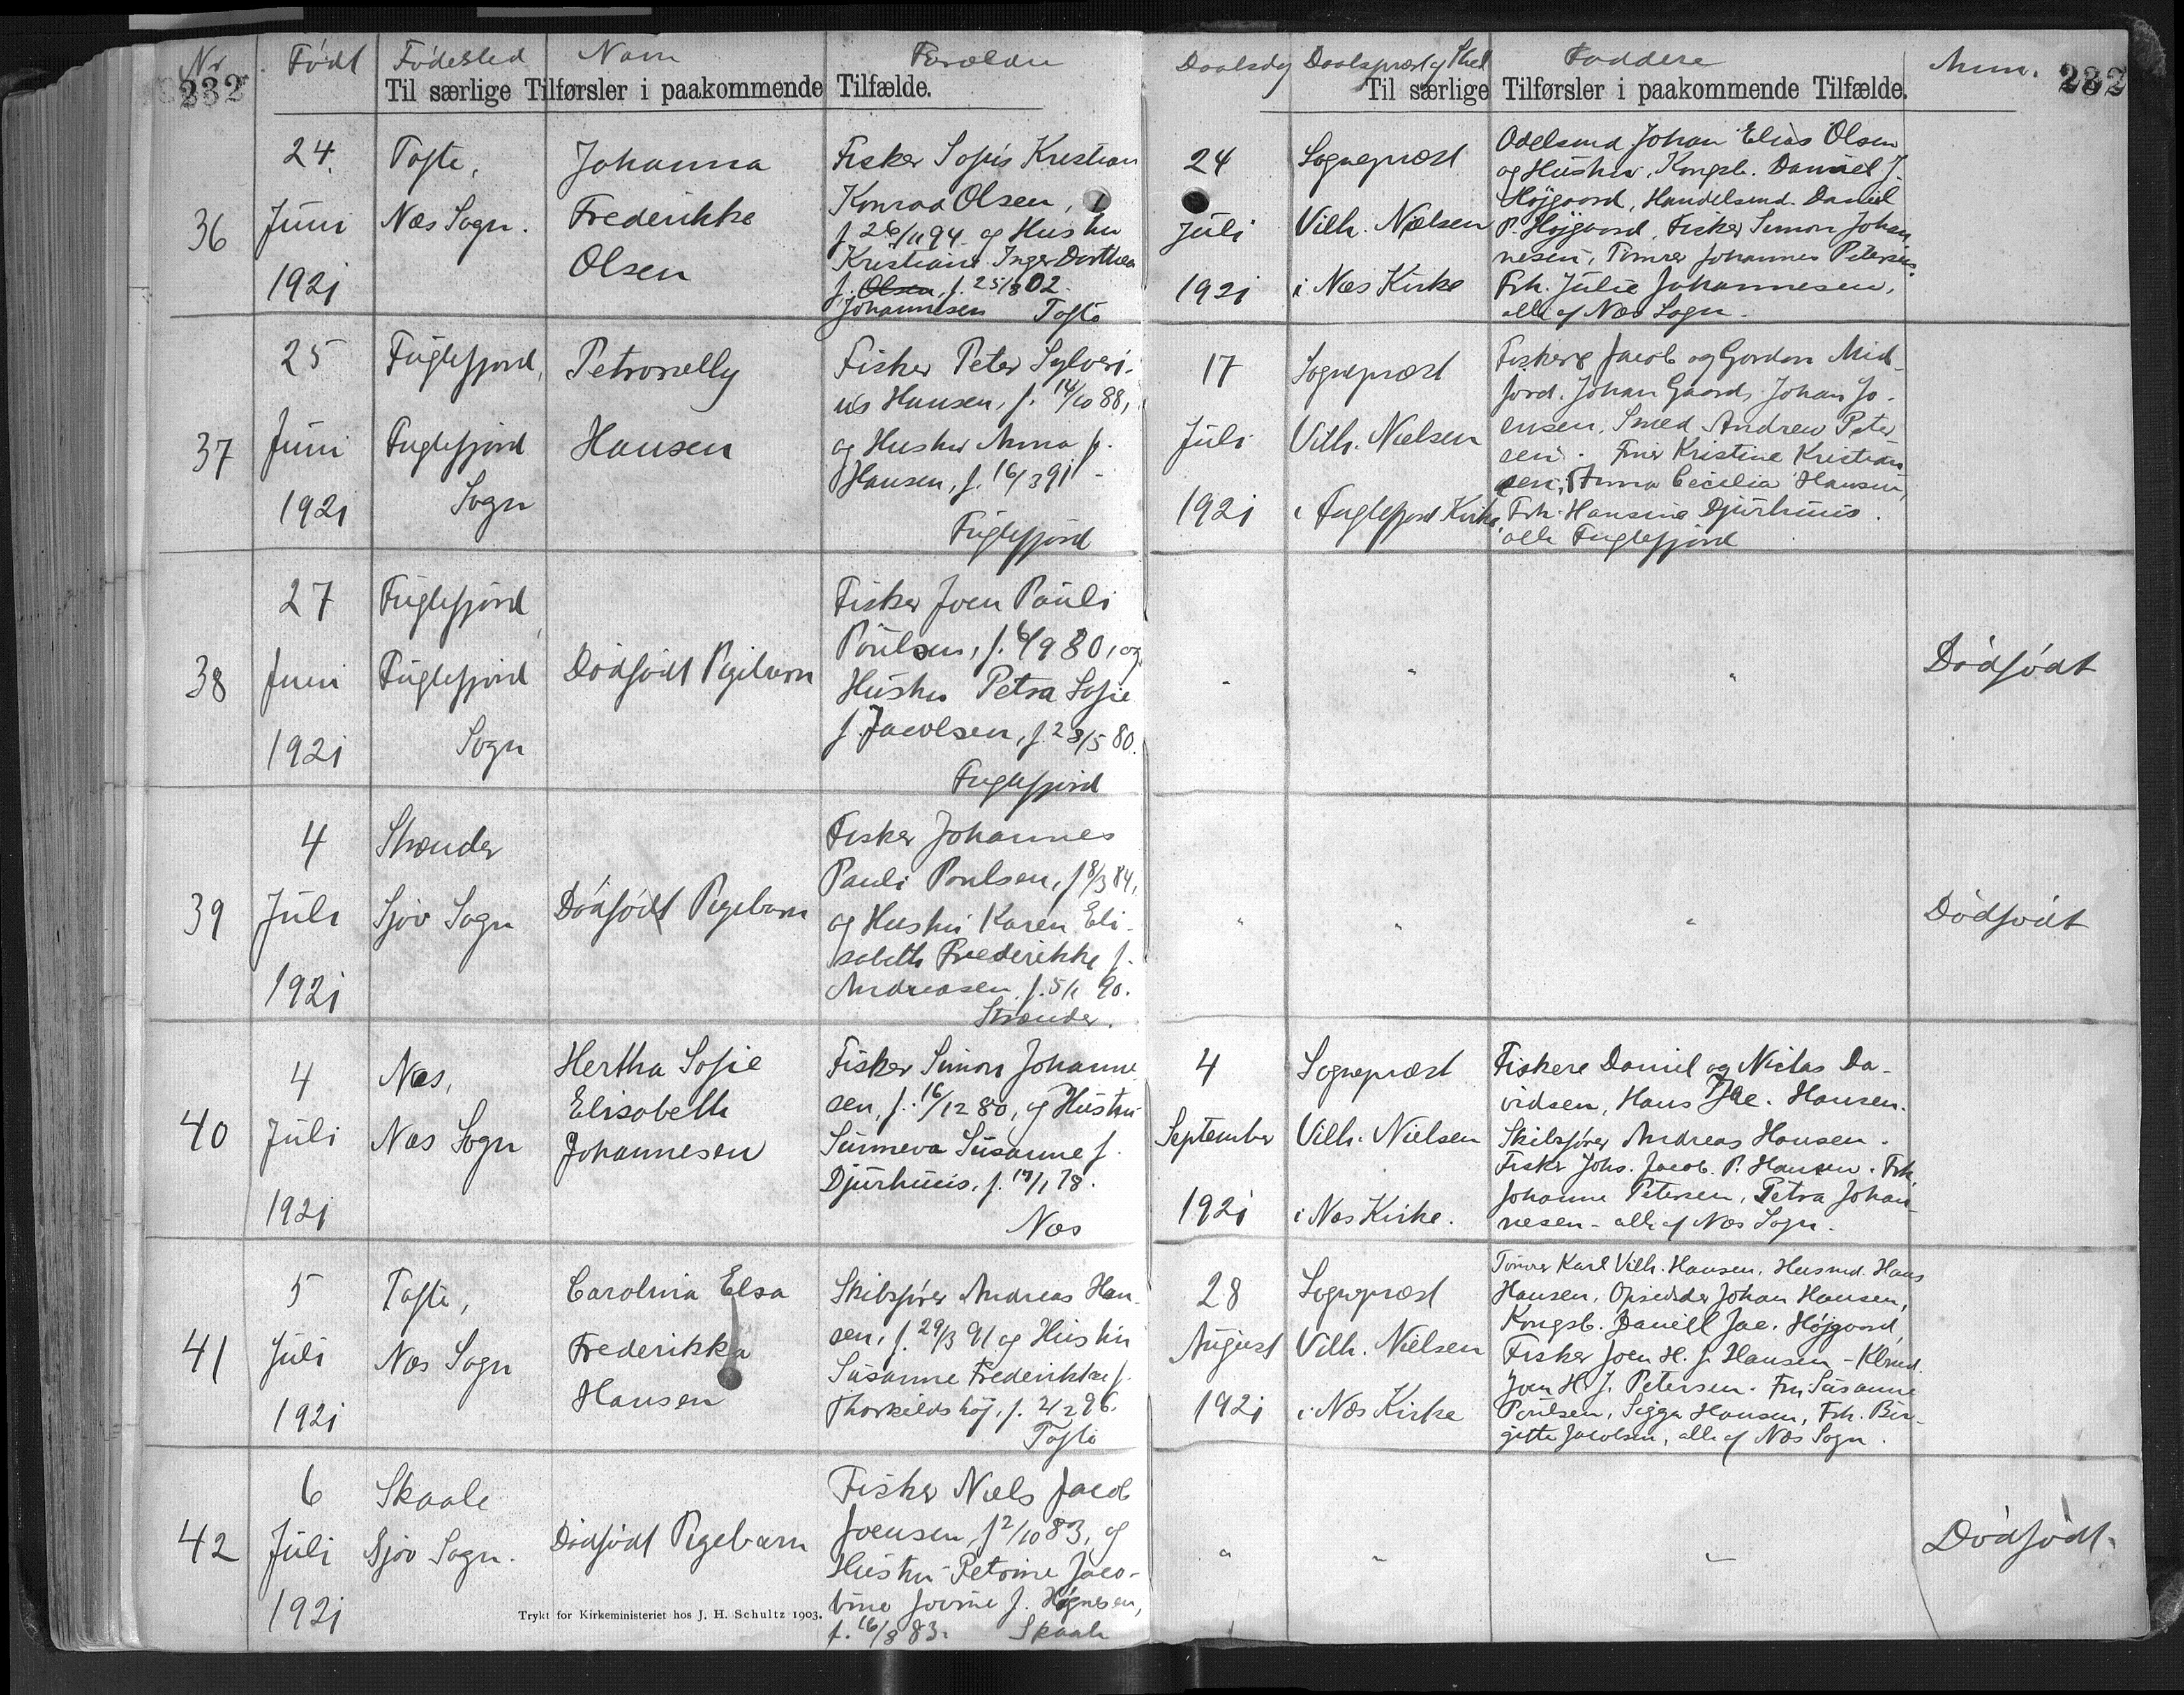 Nr Født Fødested Navn Forældre
232
Til særlige Tilførsler i paakommende Tilfælde.
36
24.
Juni
1921
Tofte,
Næs Sogn.
Johanna
Frederikke
Olsen
Fisker Sofus Kristian
Konrad Olsen,
f. 26/11 94 og Hustru
Kristiane Inger Dorthea
f. Olsen, f. 25/8 02.
Johannesen Tofte
37
25
Juni
1921
Fuglefjord,
Fuglefjord
Sogn
Petronelly
Hansen
Fisker Peter Sylveri-
us Hansen, f. 14/10 88,
og Hustru Anna f.
Hansen, f. 16/3 91 -
Fuglefjord
38
27
Juni
1921
Fuglefjord,
Fuglefjord
Sogn
Dødfødt Pigebarn
Fisker Joen Pauli
Poulsen, f. 6/9 80, og
Hustru Petra Sofie
f. Jacobsen, f. 28/5 80.
Fuglefjord
39
4
Juli
1921
Strænder
Sjov Sogn
Dødfødt Pigebarn
Fisker Johannes
Pauli Poulsen, f 8/3 84,
og Hustru Karen Eli-
sabeth Frederikke f.
Andreasen, f. 5/1 90.
Strænder.
40
4
Juli
1921
Næs,
Næs Sogn
Hertha Sofie
Elisabeth
Johannesen
Fisker Simon Johanne
sen, f. 16/12 80, og Hustru
Sunneva Susanne f.
Djurhuus, f. 17/1 78.
Næs
41
5
Juli
1921
Tofte,
Næs Sogn
Carolina Elsa
Frederikka
Hansen
Skibsfører Andreas Han-
sen, f. 29/3 91 og Hustru
Susanne Frederikke f.
Thorkildshøj, f. 2/2 96.
Tofte
42
6
Juli
1921
Skaale
Sjov Sogn.
Dødfødt Pigebarn
Fisker Niels Jacob
Joensen, f 2/10 83, og
Hustru Petrine Jaco-
bine Jovine f. Høgnesen,
f. 16/8 83. Skaale
Trykt for Kirkeministeriet hos J. H. Schultz 1903.
Daabsdag Daabspræst og Sted Faddere Anm.
232
Til særlige Tilførsler i paakommende Tilfælde.
24
Juli
1921
Sognepræst
Vilh. Nielsen
i Næs Kirke
Odelsmd Johan Elias Olsen
og Hustru, Kongsb. Daniel J.
Højgaard, Handelsmd. Daniel
P. Højgaard, Fisker Simon Johan
nesen, Tømrer Johannes Petersen.
Frk. Julie Johannesen,
alle af Næs Sogn.
17
Juli
1921
Sognepræst
Vilh. Nielsen
i Fuglefjord Kirke.
Fiskere Jacob og Gordon Mid-
fjord. Johan Gaard, Johan Jo-
ensen, Smed Andrew Peter
sen. Fruer Kristine Kristian
sen, Anna Cecilia Hansen,
Frk. Hansina Djurhuus.
alle Fuglefjord
" " " Dødfødt
" " " Dødfødt
4
September
1921
Sognepræst
Vilh. Nielsen
i Næs Kirke.
Fiskere Daniel og Niclas Da-
vidsen, Hans Jac. Hansen.
Skibsfører Andreas Hansen.
Fisker Johs. Jacob P. Hansen. Frk.
Johanne Petersen, Petra Johan-
nesen - alle af Næs Sogn.
28
August
1921
Sognepræst
Vilh. Nielsen
i Næs Kirke
Tømrer Karl Vilh. Hansen, Husmd. Hans
Hansen, Opsidder Johan Hansen,
Kongsb. Daniell Jac. Højgaard,
Fisker Joen H. J. Hansen -
Joen H. J. Petersen. Fru Susanne
Poulsen, Sigga Hansen, Frk. Bir-
gitte Jacobsen, alle af Næs Sogn.
" " " Dødfødt.